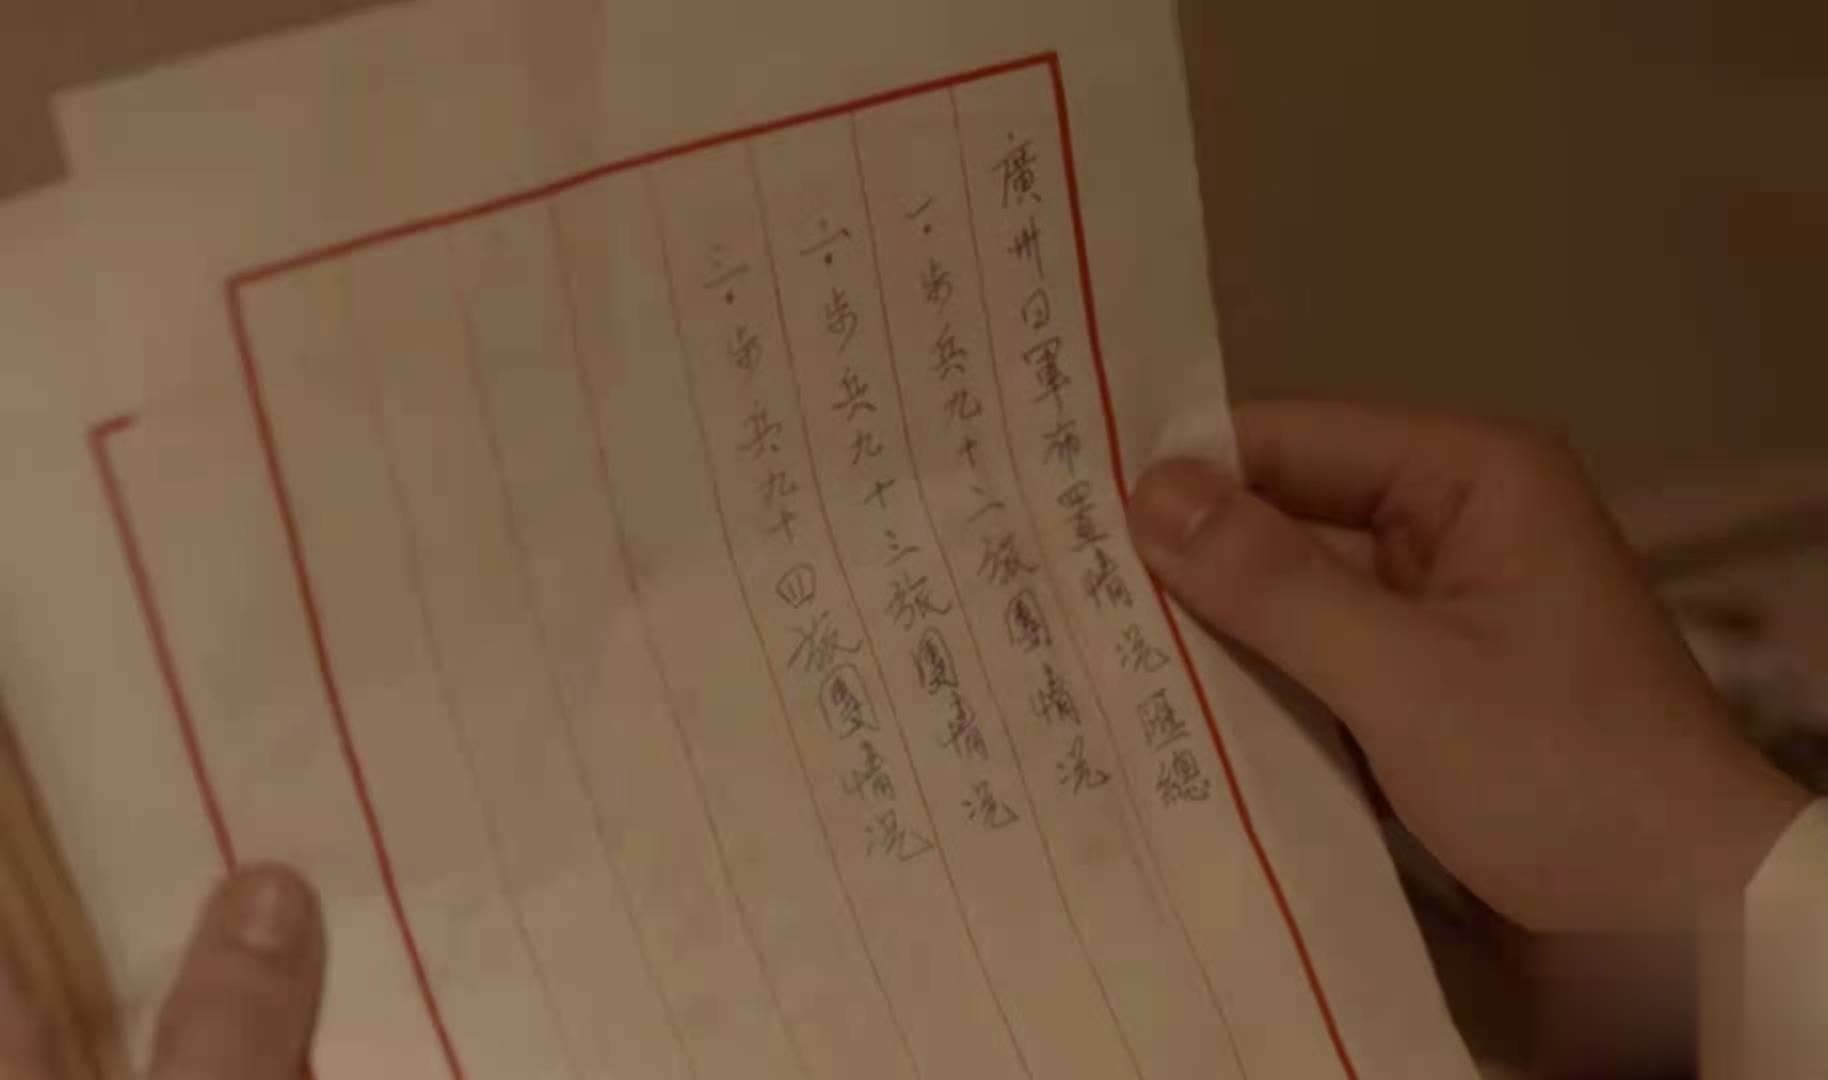 廣州日軍布置情況匯總
一.步兵九十二旅團情況
二.步兵九十三旅團情況
三.步兵九十四旅團情況